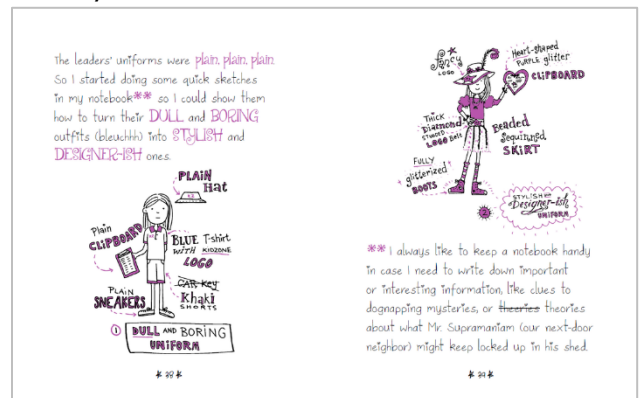 The leaders' uniforms were plain, plain, plain.
So I started doing some quick sketches
in my notebook** so I could show them
how to turn their DULL and BORING
outfits (bleuchhh) into STYLISH and
DESIGNER-ISH ones.
PLAIN
Hat
Plain
CLIPBOARD
BLUE T-shirt
WITH KIDZONE
LOGO
CAR KEY
Khaki
SHORTS
PLAIN
SNEAKERS
1 DULL AND BORING
UNIFORM
Fancy
LOGO
Heart-shaped
PURPLE glitter
CLIPBOARD
THICK
Diamond
STUDDED
LOGO Belt
Beaded
Sequinned
SKIRT
FULLY
glitterized
BOOTS
2
STYLISH AND
Designer-ish
UNIFORM
** I always like to keep a notebook handy
in case I need to write down important
or interesting information, like clues to
dognapping mysteries, or theeries theories
about what Mr. Supramaniam (our next-door
neighbor) might keep locked up in his shed.